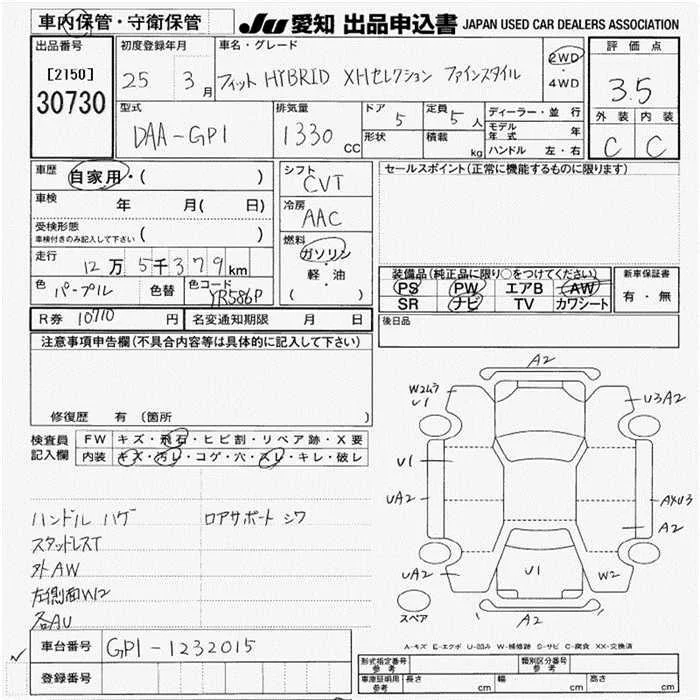 車内保管・守衛保管
JU 愛知 出品申込書 JAPAN USED CAR DEALERS ASSOCIATION
出品番号
[2150]
30730
初度登録年月
25 3月
車名・グレード
フィット HYBRID XHセレクション ファインスタイル
2WD
・
4WD
評価点
3.5
外装 内装
C C
型式
DAA-GP1
排気量
1330 CC
ドア 5
形状
定員 5人
積載 kg
ディーラー・並行
モデル年式 年
ハンドル 左・右
車歴 自家用・( )
車検 年 月( 日)
受検形態
車検付きのみ記入して下さい ( )
走行 12万5千379km
色 パープル 色替 色コード YR586P
シフト
CVT
冷房
AAC
燃料
ガソリン
・
軽・油
( )
セールスポイント(正常に機能するものに限ります)
装備品(純正品に限り○をつけてください)
PS PW エアB AW
SR ナビ TV カワシート
新車保証書
有・無
R券 10710 円 名変通知期限 月 日
後日品
注意事項申告欄(不具合内容等は具体的に記入して下さい)
修復歴 有(箇所
検査員記入欄
FW キズ・飛石・ヒビ割・リペア跡・X要
内装 キズ・汚レ・コゲ・穴・スレ・キレ・破レ
ハンドル ハゲ ロアサポート シワ
スタッドレスT
外AW
左側面W2
各AU
車台番号 GP1-1232015
登録番号
A2
W2ムラ
U1
U3A2
U1
UA2
AXU3
A2
UA2
U1
W2
A2
スペア
A-キズ E-エクボ U-凹み W-補修跡 S-サビ C-腐食 XX-交換済
形式指定番号 参考 類別区分番号 参考
車庫証明用 参考 長さ cm 幅 cm 高さ cm